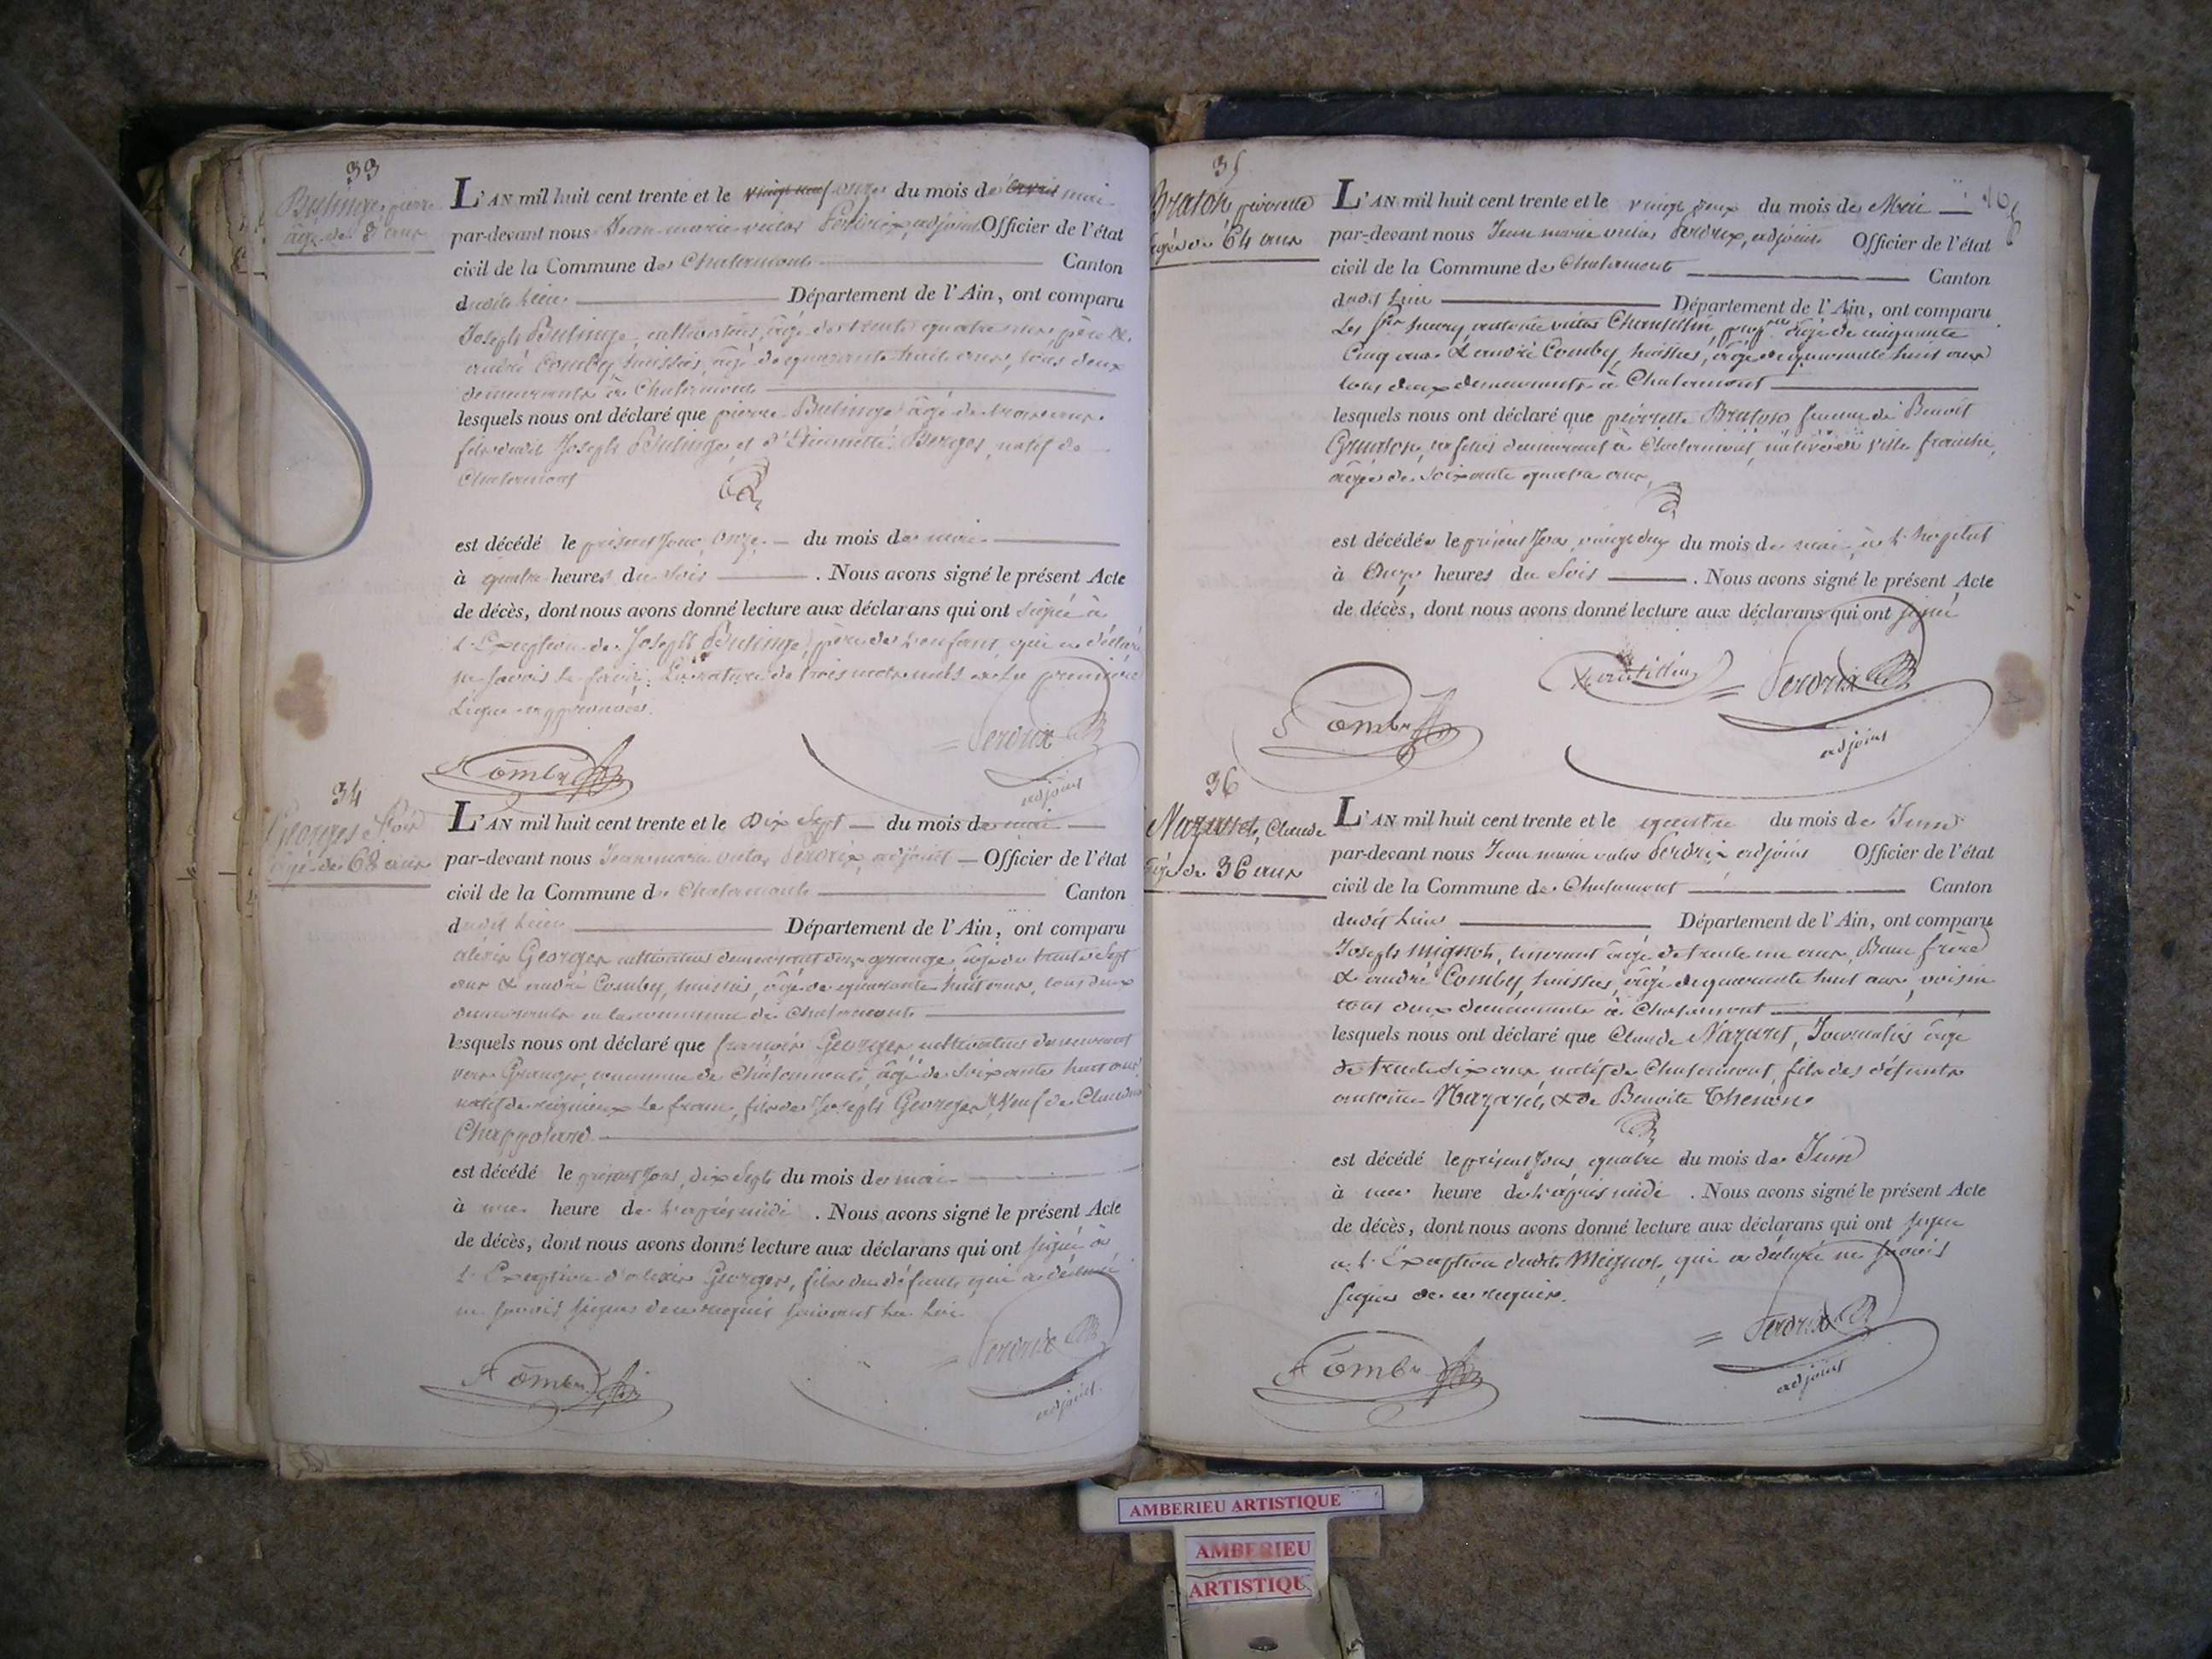 33
Bulinge, pierre
âgé de 3 ans
L'AN mil huit cent trente et le vingt neuf onze du mois de avril mai
par-devant nous Jean marie victor Perdrix, adjoint Officier de l'état
civil de la Commune de Chalamont Canton
dudit lieu Département de l'Ain, ont comparu
Joseph Bulinge, cultivateur, âgé de trente quatre ans, père &
andré Comby huissier, âgé de quarante huit ans, tous deux
demeurants à Chalamont
lesquels nous ont déclaré que pierre Bulinge âgé de trois ans
fils dudit Joseph Bulinge, et d'Etiennette Berger, natif de
Chalamont
est décédé le présent jour, onze du mois de mai
à quatre heures du soir . Nous avons signé le présent Acte
de décès, dont nous avons donné lecture aux déclarans qui ont signé à
l'Exception de Joseph Bulinge, père de l'enfant, qui a déclaré
ne savoir le faire. La rature de trois mots nuls à la première
Ligne approuvée.
Comby
Perdrix
adjoint
34
Georges
âgé de 68 ans
L'AN mil huit cent trente et le Dix Sept du mois de mai
par-devant nous Jean marie victor Perdrix, adjoint Officier de l'état
civil de la Commune de Chalamont Canton
dudit lieu Département de l'Ain, ont comparu
alexis Georges cultivateur demeurant aux granges, âgé de trente Sept
ans & andré Comby, huissier, âgé de quarante huit ans, tous deux
demeurants en la commune de Chalamont
lesquels nous ont déclaré que françois Georges cultivateur demeurant
Granges, commune de Chalamont, âgé de soixante huit ans
natif de rignieux Le franc, fils de Joseph Georges, Veuf de Claudine
Chappoland
est décédé le présent jour, dix Sept du mois de mai
à une heure de l'après midi . Nous avons signé le présent Acte
de décès, dont nous avons donné lecture aux déclarans qui ont signé à
l'Exception d'alexis Georges, fils du défunt, qui a déclaré
ne savoir signer de ce requis suivant la Loi
Comby
Perdrix
adjoint
35
Braton pierrette
âgée de 64 ans
L'AN mil huit cent trente et le vingt deux du mois de Mai
par-devant nous Jean marie victor Perdrix, adjoint Officier de l'état
civil de la Commune de Chalamont Canton
dudit lieu Département de l'Ain, ont comparu
Les Srs antoine victor âgé de cinquante
Cinq ans & andré Comby, huissier, âgé de quarante huit ans
tous deux demeurants à Chalamont
lesquels nous ont déclaré que pierrette Braton femme de Benoit
demeurant à Chalamont, native de ville franche,
âgée de soixante quatre ans,
est décédée le présent jour, vingt deux du mois de mai, à l'hopital
à Onze heures du soir . Nous avons signé le présent Acte
de décès, dont nous avons donné lecture aux déclarans qui ont signé
Comby
Perdrix
adjoint
36
Nazaret, Claude
âgé de 36 ans
L'AN mil huit cent trente et le quatre du mois de Juin
par-devant nous Jean marie victor Perdrix adjoint Officier de l'état
civil de la Commune de Chalamont Canton
dudit lieu Département de l'Ain, ont comparu
Joseph Mignot, tisserand âgé de trente un ans, Beau frère
& andré Comby, huissier, âgé de quarante huit ans, voisin
tous deux demeurants à Chalamont
lesquels nous ont déclaré que Claude Nazaret, Journalier âgé
de trente six ans, natif de Chalamont, fils des défunts
antoine Nazaret, & de Benoite Thenon
est décédé le présent jour quatre du mois de Juin
à une heure de l'après midi . Nous avons signé le présent Acte
de décès, dont nous avons donné lecture aux déclarans qui ont signé
à l'Exception dudit Mignot, qui a déclaré ne savoir
signer de ce requis.
Comby
Perdrix
adjoint
AMBERIEU ARTISTIQUE
AMBERIEU
ARTISTIQU